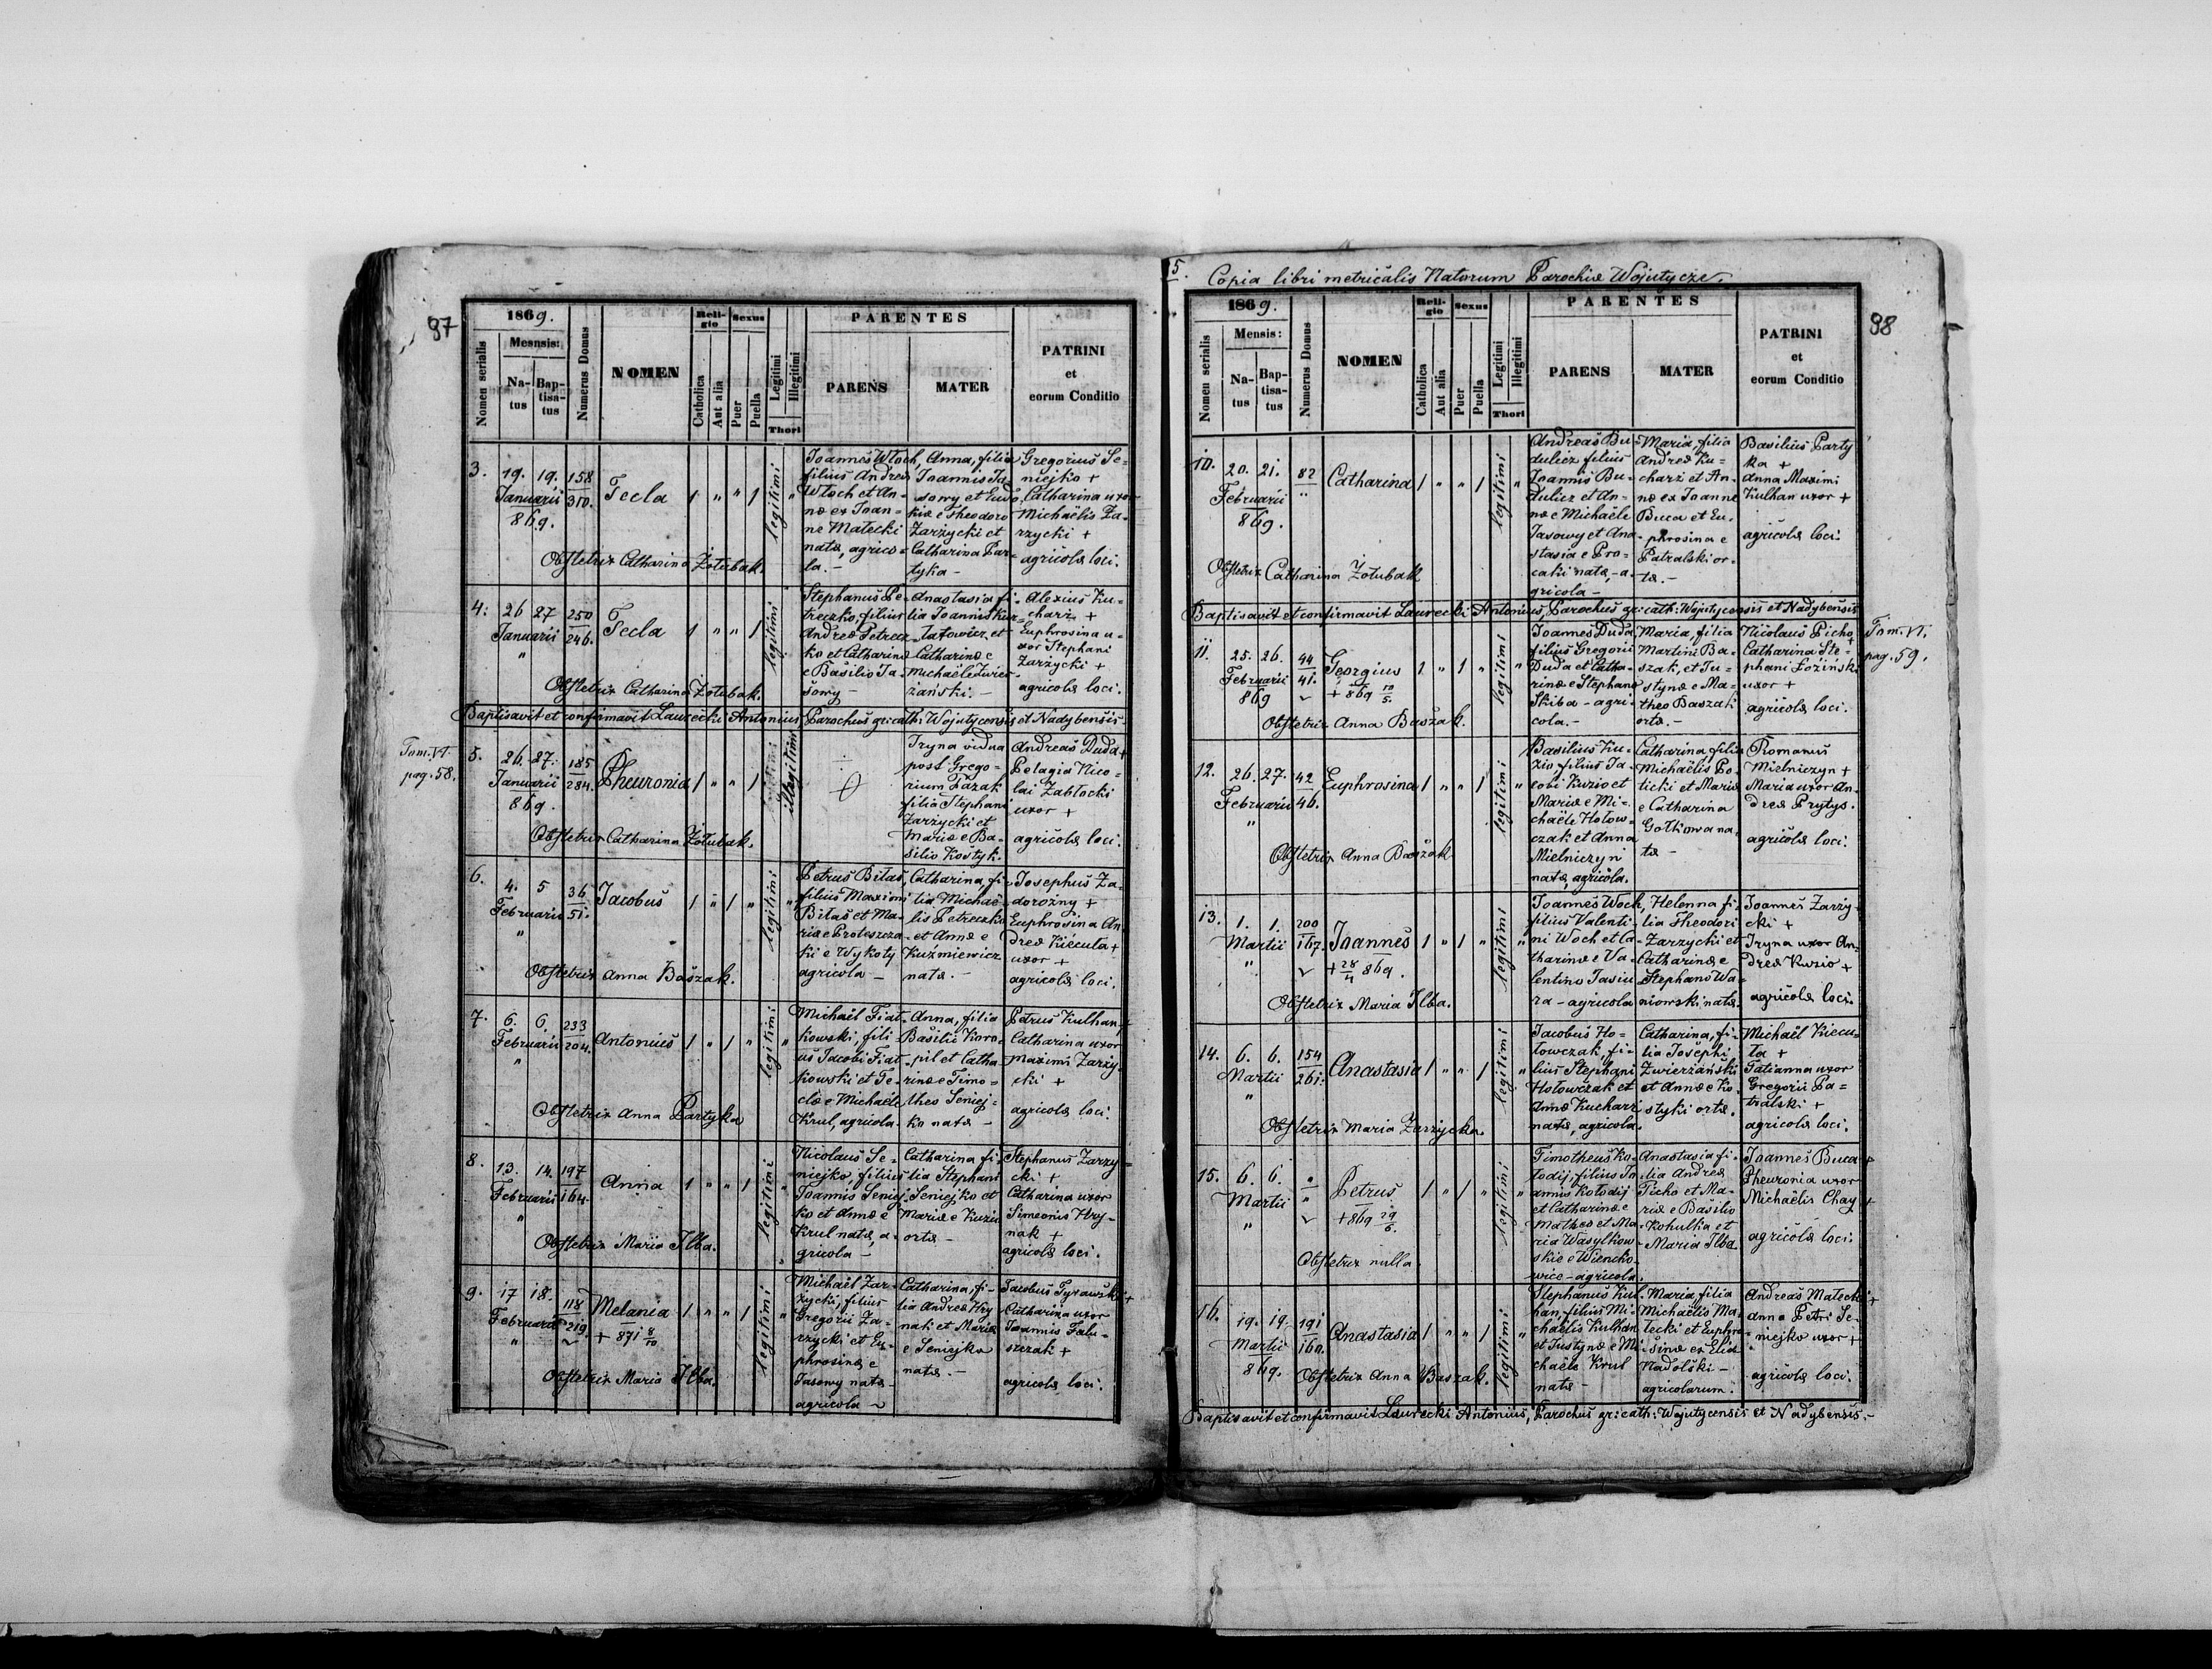 97
1869.
Nomen serialis
Mesnsis:
Na-
tus
Bap-
tisa-
tus
Numerus Domus
NOMEN
Reli-
gio
Catholica
Aut alia
Sexus
Puer
Puella
Legitimi
Illegitimi
Thori
PARENTES
PARENS
MATER
PATRINI
et
eorum Conditio
3.
19. 19.
Januarii
869.
158
310.
Tecla
1 " " 1
legitimi
"
Joannes Włoch,
filius Andreæ
Włoch et An-
næ ex Joan-
ne Małecki
natæ, agrico-
la. -
Anna, filia
Joannis Ja-
sowy et Eudo-
kiæ e Theodoro
Zarzycki et
Catharina Par-
tyka -
Gregorius Se-
niejko +
Catharina uxor
Michaëlis Za-
rzycki +
agricolæ loci.
Obstetrix Catharina Żołubak.
4.
26 27
Januarii
"
250
246.
Tecla
1 " " 1
legitimi
Stephanus Pe-
treczko, filius
Andreæ Petrecz-
ko et Catharinæ
e Basilio Ja-
sowy -
Anastasia fi-
lia Joannis Kur-
łatowicz, et
Catharinæ e
Michaële Zwier-
żański. -
Alexius Ku-
charz +
Euphrosina u-
xor Stephani
Zarzycki +
agricolæ loci.
Obstetrix Catharina Żołubak.
Baptisavit et confirmavit Laurecki Antonius, Parochus gr: cath: Wojutycensis et Nadybensis.
Tom. VI.
pag. 58.
5.
26. 27.
Januarii
869.
185
284.
Pheuronia
1 " " 1
illegitimi
Iryna vidua
post Grego-
rium Łazak
filia Stephani
Zarzycki et
Mariæ e Ba-
silio Kostyk.
Andreas Duda +
Pelagia Nico-
lai Zabłocki
uxor +
agricolæ loci.
Obstetrix Catharina Żołubak.
6.
4. 5
Februarii
"
36
51.
Jacobus
1 " 1 "
legitimi
"
Petrus Biłas,
filius Maximi
Biłas et Ma-
riæ e Proteszcza-
ki e Wykoty
agricola -
Catharina, fi-
lia Michaë-
lis Petreczko
et Annæ e
Kuźmiewicz
nata. -
Josephus Za-
dorożny +
Euphrosina An-
dreæ Kiecuła +
uxor +
agricolæ loci.
Obstetrix Anna Baszak.
7.
6. 6.
Februarii
"
233
204.
Antonius
1 " 1 "
legitimi
"
Michaël Fiat-
kowski, fili-
us Jacobi Fiat-
kowski et Te-
clæ e Michaële
Krul, agricola.
Anna, filia
Basilii Koro-
pil et Catha-
rinæ e Timo-
theo Seniej-
ko nata -
Petrus Kulhan +
Catharina uxor
Maximi Zarzy-
cki +
agricolæ loci
Obstetrix Anna Partyka
8.
13. 14.
Februarii
"
197
164.
Anna
1 " " 1
legitimi
"
Nicolaus Se-
niejko, filius
Joannis Seniej-
ko et Annæ e
Krul natæ, a-
gricola -
Catharina fi-
lia Stephani
Seniejko et
Mariæ e Kuzio
orta -
Stephanus Zarzy-
cki +
Catharina uxor
Simeonis Hry-
nak +
agricolæ loci.
Obstetrix Maria Ilba.
9.
17 18.
Februarii
"
118
219.
Melania
+ 871 8/10
1 " " 1
legitimi
"
Michaël Zar-
zycki, filius
Gregorii Za-
rzycki et Eu-
phrosinæ e
Jasowy nata -
agricola -
Catharina, fi-
lia Andreæ Hry-
nak et Mariæ
e Seniejko
nata. -
Jacobus Tyrawski +
Catharina uxor
Joannis Falu-
szczak +
agricolæ loci.
Obstetrix Maria Ilba.
5.
Copia libri metricalis Natorum Parochiæ Wojutycze.
98
1869.
Nomen serialis
Mensis:
Na-
tus
Bap-
tisa-
tus
Numerus Domus
NOMEN
Reli-
gio
Catholica
Aut alia
Sexus
Puer
Puella
Legitimi
Illegitimi
Thori
PARENTES
PARENS
MATER
PATRINI
et
eorum Conditio
10.
20. 21.
Februarii
869.
82
"
Catharina
1 " " 1
legitimi
"
Andreas Bu-
dulicz filius
Joannis Bu-
dulicz et An-
næ e Michaële
Jasowy et Ana-
stasia e Pro-
caki natæ, a-
gricola -
Maria, filia
Andreæ Ku-
charz et An-
næ ex Joanne
Buca et Eu-
phrosina e
Patralski or-
ta. -
Basilius Party
ka +
Anna Maximi
Kulhan uxor +
agricolæ loci.
Obstetrix Catharina Żołubak
Baptisavit et confirmavit Laurecki Antonius, Parochus gr: cath: Wojutycensis et Nadybensis
Tom. VI.
pag. 59.
11.
25. 26.
Februarii
869
44
41.
Georgius
+ 869 10/5.
1 " 1 "
legitimi
"
Joannes Duda
filius Gregorii
Duda et Catha-
rinæ e Stephano
Skiba - agri-
cola. -
Maria, filia
Martini Ba-
szak, et Ju-
stynæ e Ma-
theo Baszak
orta. -
Nicolaus Picho +
Catharina Ste-
phani Łoziński
uxor +
agricolæ loci.
Obstetrix Anna Baszak.
12.
26. 27.
Februarii
"
42
46.
Euphrosina
1 " " 1
legitimi
"
Basilius Ku-
zio filius Ja-
cobi Kuzio et
Mariæ e Mi-
chaële Hołow-
czak et Anna
Mielniczyn
natæ, agricola.
Catharina, filia
Michaëlis Po-
ticki et Mariæ
e Catharina
Gotkowa na-
ta -
Romanus
Mielniczyn +
Maria uxor An-
dreæ Prytys.
agricolæ loci.
Obstetrix Anna Baszak
13.
1. 1.
Martii
"
200
167.
Joannes
+ 28/4 869.
1 " 1 "
legitimi
"
Joannes Woch,
filius Valenti-
ni Woch et Ca-
tharinæ e Va-
lentino Jasiu-
ra - agricola
Helenna fi-
lia Theodori
Zarzycki et
Catharinæ e
Stephano Wa-
niowski nata.
Joannes Zarzy-
cki +
Iryna uxor An-
dreæ Kuzio +
agricolæ loci.
Obstetrix Maria Ilba.
14.
6. 6.
Martii
"
154
261.
Anastasia
1 " " 1
legitimi
"
Jacobus Ho-
łowczak, fi-
lius Stephani
Hołowczak et
Annæ Kucharz
natæ, agricola.
Catharina, fi-
lia Josephi
Zwierżański
et Annæ e Ko-
styki orta.
Michaël Kiecu-
ła +
Tatianna uxor
Gregorii Pa-
tralski +
agricolæ loci.
Obstetrix Maria Zarzycka.
15.
6. 6.
Martii
"
"
"
Petrus
+ 869 29/6.
1 " 1 "
legitimi
"
Timotheus Ko-
łodij, filius Jo-
annis Kołodij
et Catharinæ e
Matheo et Ma-
ria Wasylkow-
skie e Wiencko-
wice - agricola.
Anastasia fi-
lia Andreæ
Ticho et Ma-
riæ e Basilio
Kohulka et
Maria Ilba.
Joannes Buca +
Pheuronia uxor
Michaëlis Chay +
agricolæ loci.
Obstetrix nulla
16.
19. 19.
Martii
869.
191
160.
Anastasia
1 " " 1
legitimi
"
Stephanus Kul-
han filius Mi-
chaëlis Kulhan
et Justynæ e Mi-
chaële Krul
natæ -
Maria, filia
Michaëlis Ma-
łecki et Euphro-
sinæ ex Elia
Nadolski -
agricolarum.
Andreas Małecki +
Anna Petri Se-
niejko uxor +
agricolæ loci.
Obstetrix Anna Baszak.
Baptisavit et confirmavit Laurecki Antonius, Parochus gr: cath: Wojutycensis et Nadybensis. -